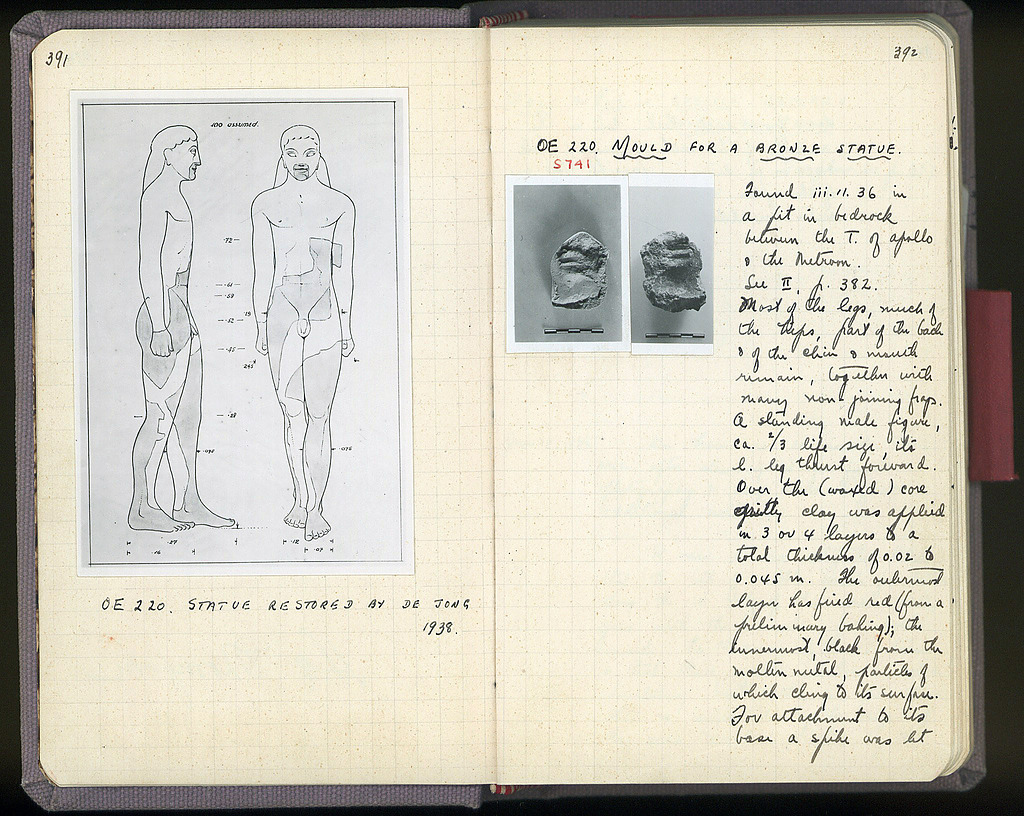 391
100 assumed.
.72
.61
.59
.52
.19
.45
.245
.28
.098
.075
.27
.16
.12
.07
OE 220. STATUE RESTORED BY DE JONG
1938.
392
OE 220. MOULD FOR A BRONZE STATUE.
S741
Found iii.11.36 in
a pit in bedrock
between the T. of Apollo
& the Metroon.
See II, p. 382.
Most of the legs, much of
the hips, part of the back
& of the chin & mouth
remain, together with
many non-joining frags.
A standing male figure,
ca. 2/3 life size, its
l. leg thrust forward.
Over the (waxed) core
gritty clay was applied
in 3 or 4 layers to a
total thickness of 0.02 to
0.045 m. The outermost
layer has fired red (from a
preliminary baking); the
innermost, black from the
molten metal, particles of
which cling to its surface.
For attachment to its
base a spike was let